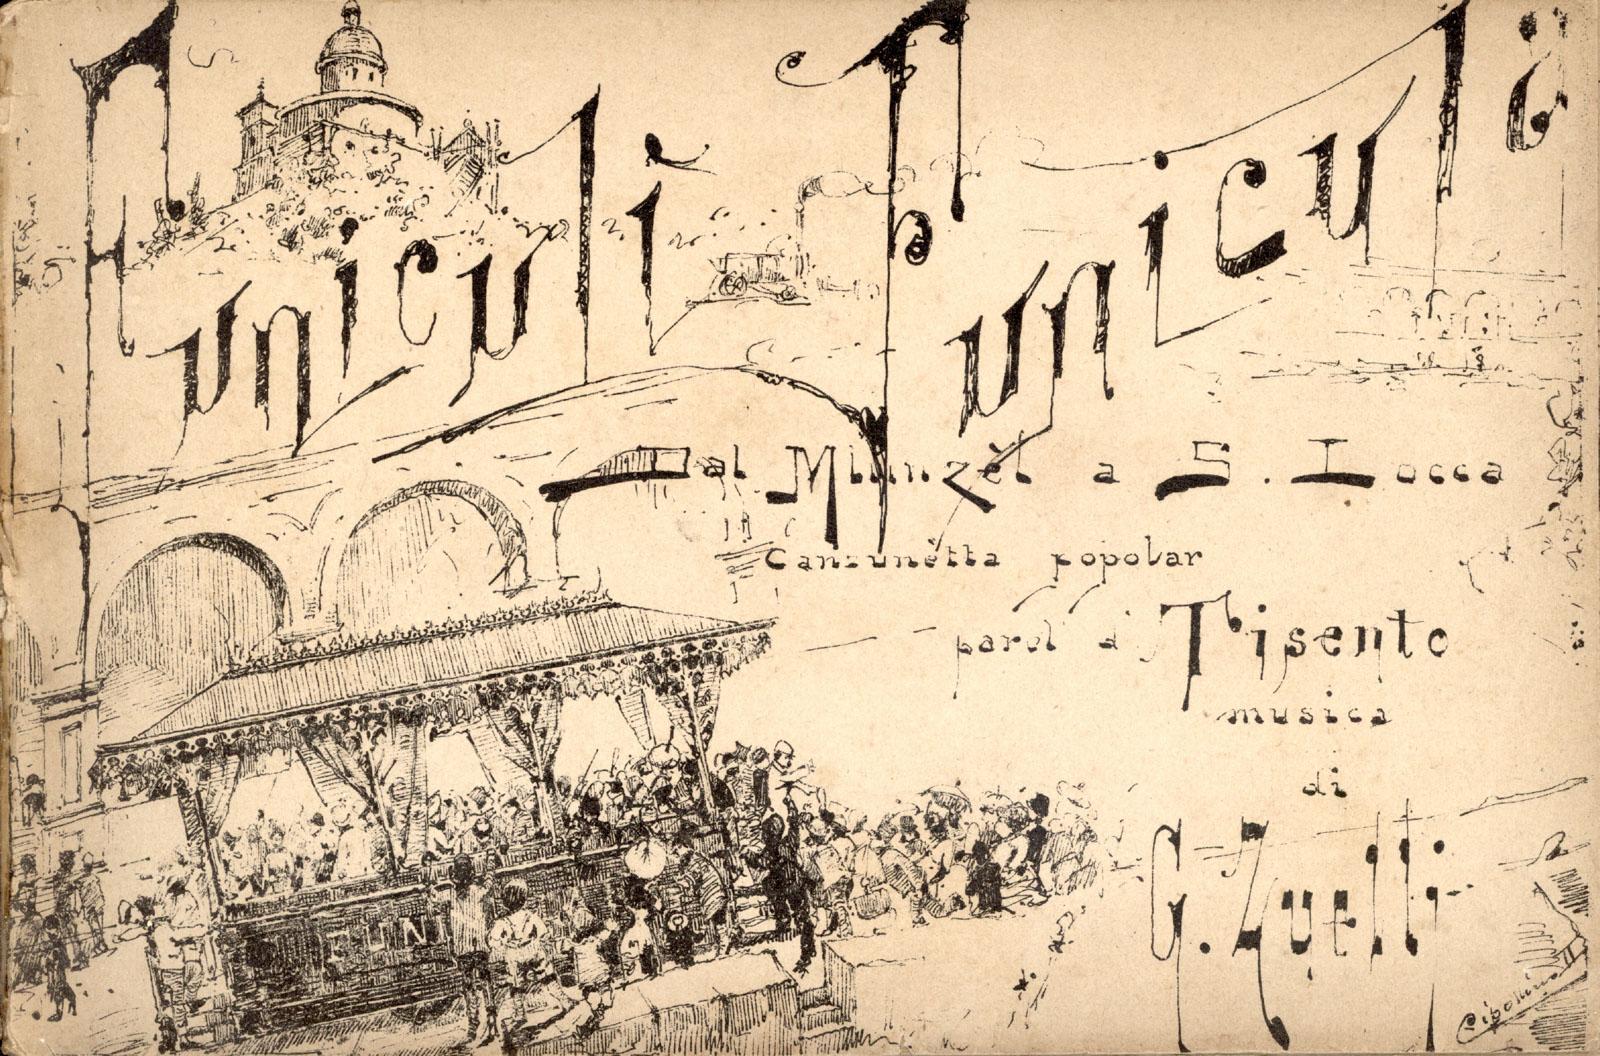 Funiculì Funiculà
Dal Mlunzèl a S. Locca
Canzunètta popolar
parol d' Tisento
musica
di
G. Zuelli
FUN